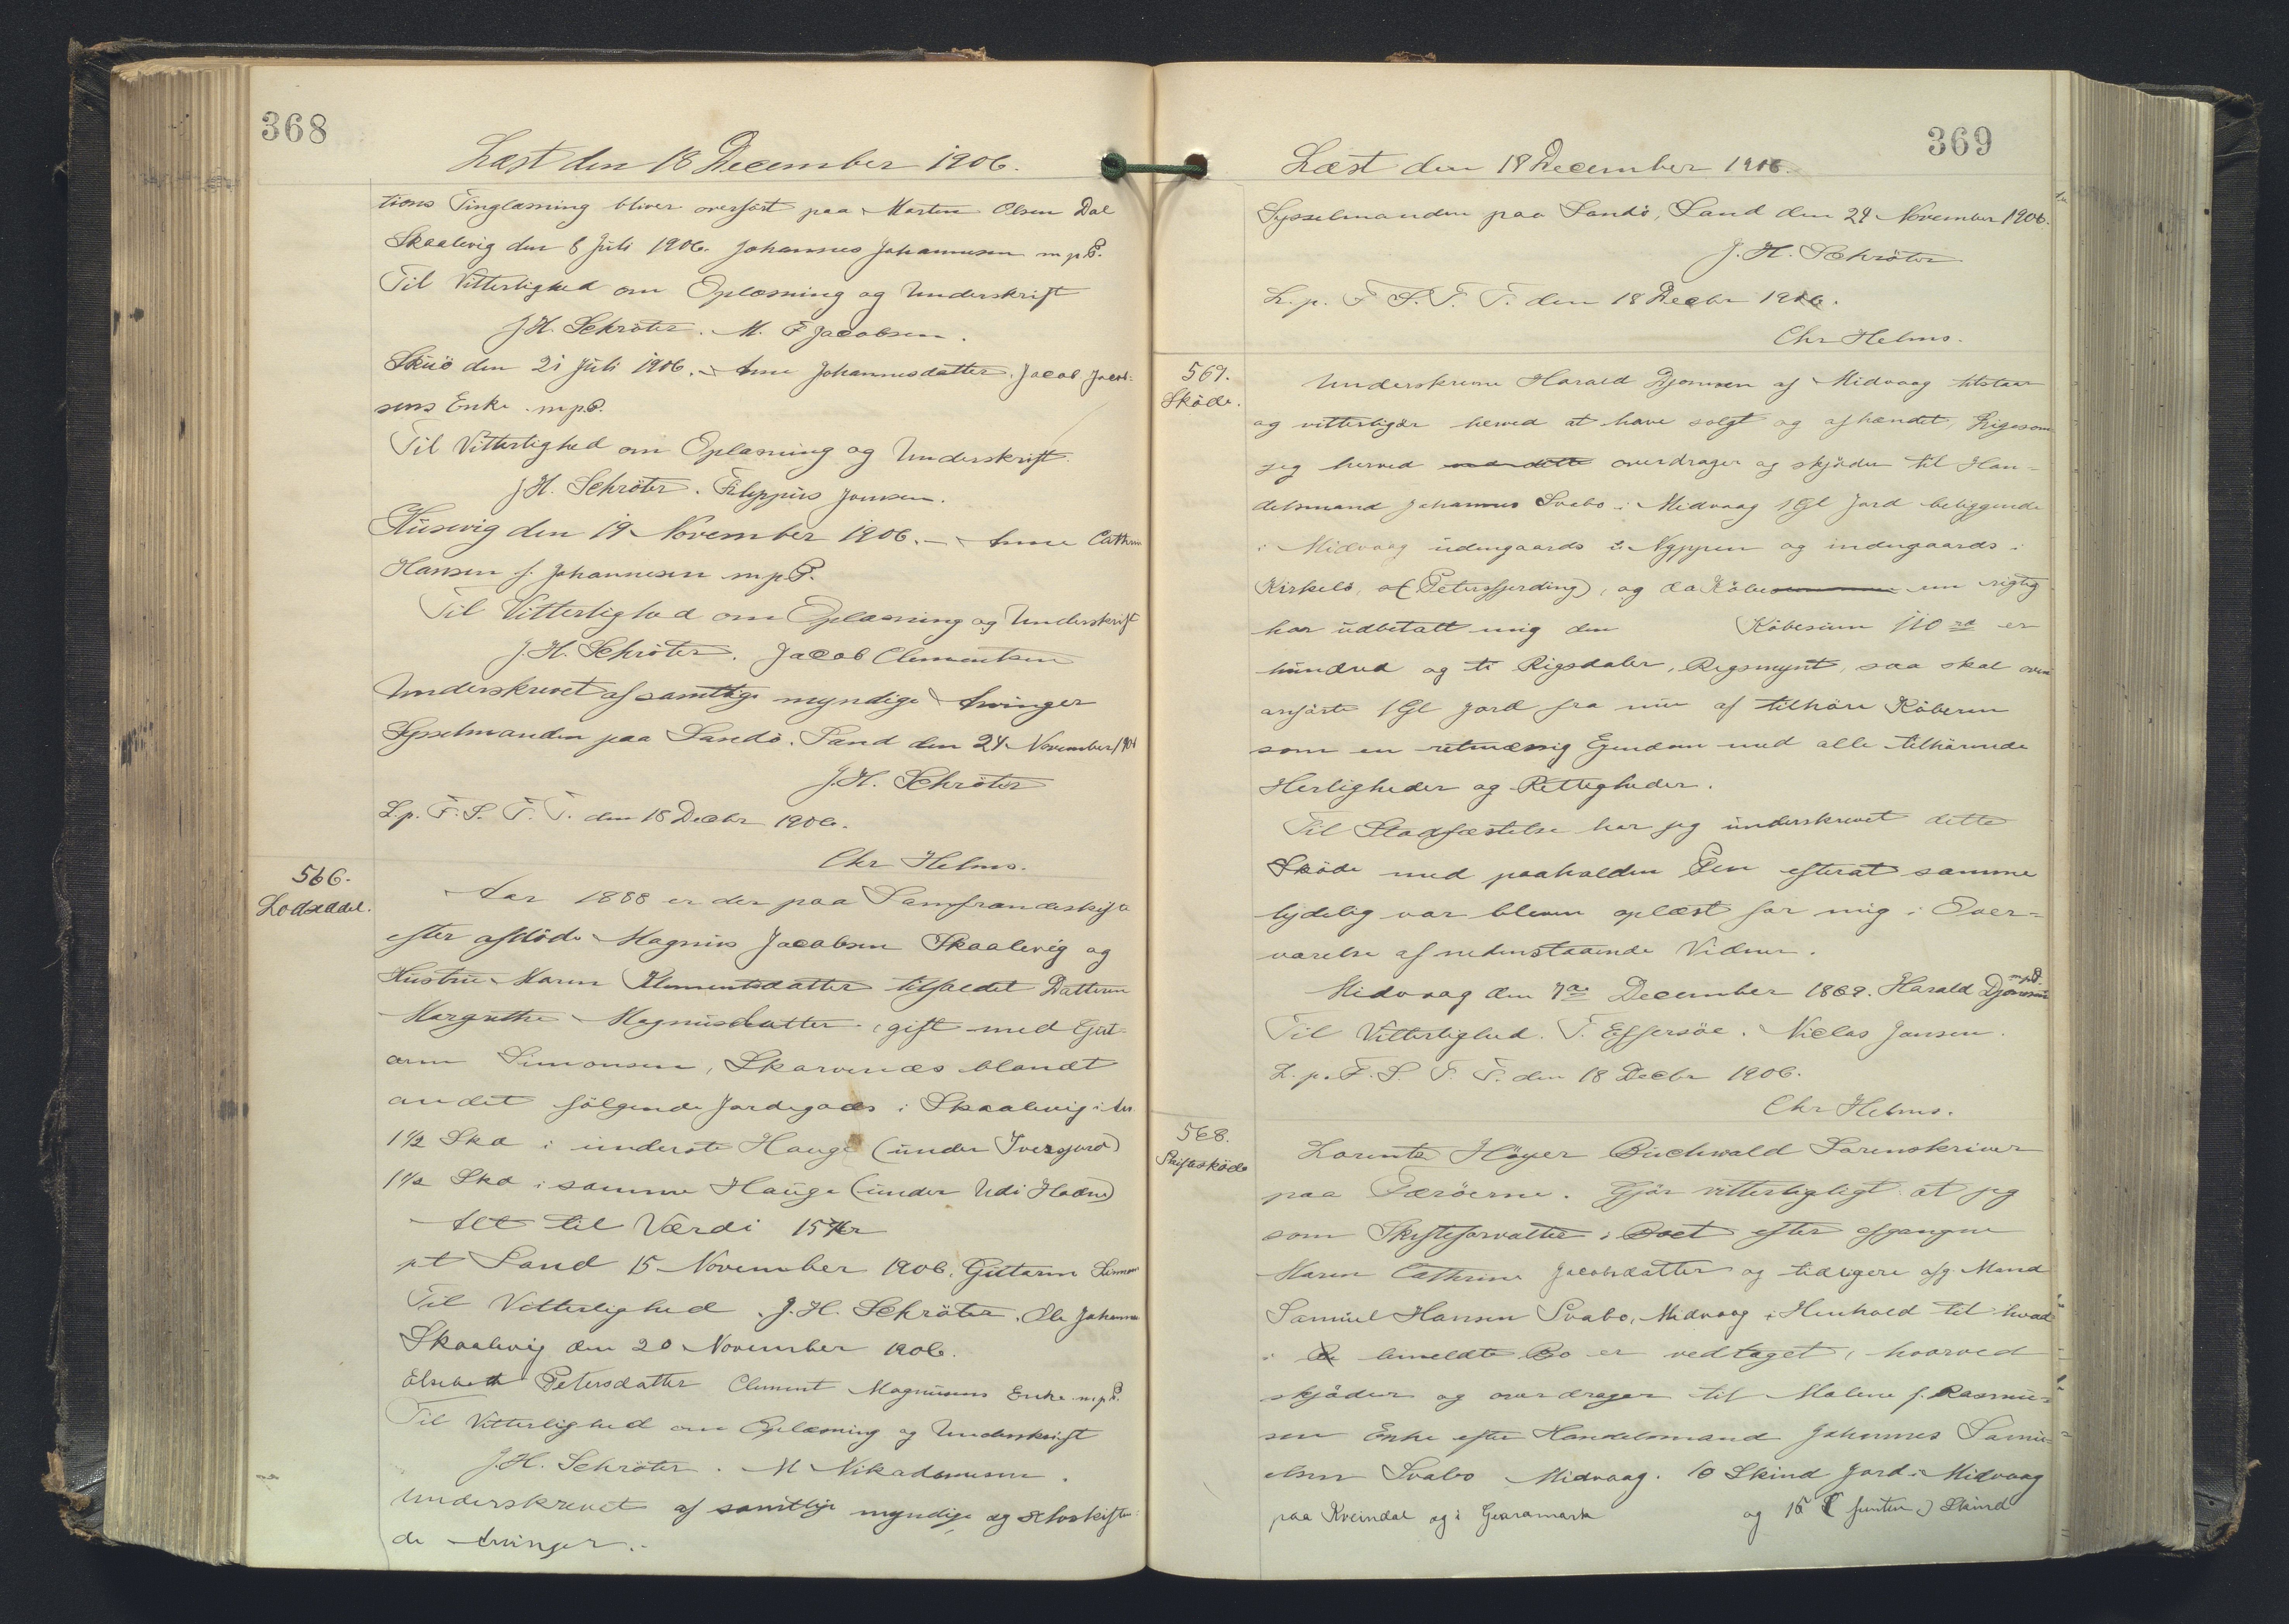 368
Læst den 18 December 1906.
tions Tinglæsning bliver overført paa Morten Olsen Dal
Skaalevig den 8 Juli 1906. Johannes Johannesen m.p.P.
Til Vitterlighed om Oplæsning og Underskrift
J.H. Schrøter. M. F Jacobsen.
Skúö den 21 Juli 1906. Anne Johannesdatter, Jacob Jacob-
sens Enke m.p.P.
Til Vitterlighed om Oplæsning og Underskrift.
J.H. Schrøter. Filippus Joensen.
Húsevig den 19 November 1906. – Anne Cathrin
Hansen f. Johannesen m.p.P.
Til Vitterlighed om Oplæsning og Underskrift
J.H. Schrøter. Jacob Clementsen
Underskrevet af samtlige myndige Arvinger
Sysselmanden paa Sandö. Sand den 24 November 1906
J.H. Schrøter
L.p. F.S. F. T. den 18 Decbr 1906.
Chr Helms.
566.
Lodseddel.
Aar 1888 er der paa Samfrændeskifte
efter afdöde Magnus Jacobsen Skaalevig og
Hustru Maren Klementsdatter tilfaldet Datteren
Margrethe Magnusdatter, gift med Gut-
orm Simonsen, Skarvenæs blandt
andet fölgende Jordegods i Skaalevig:
1½ Skd i underste Hauge (under Iversjord)
1½ Skd i samme Hauge (under Udi Hadne)
Alt til Værdi 15 Kr
pt Sand 15 November 1906. Guttorm Simonsen
Til Vitterlighed J.H. Schrøter. Ole Johannes
Skaalevig den 20 November 1906.
Elsebeth Petersdatter Clement Magnusens Enke m.p.P.
Til Vitterlighed om Oplæsning og Underskrift
J.H. Schrøter. M Nikodemusen.
Underskrevet af samtlige myndige og selvskiften-
de Arvinger.
369
Læst den 18 December 1906.
Sysselmanden paa Sandö, Sand den 24 November 1906.
J.H. Schrøter
L.p. F S. F. T. den 18 Decbr 1906.
Chr Helms.
567.
Sköde.
Underskrevne Harald Djonesen af Midvaag tilstaar
og vitterligör herved at have solgt og afhændet, ligesom
jeg herved overdrager og skjöder til Han-
delsmand Johannes Svabo i Midvaag 1 Gl Jord beliggende
i Midvaag udengaards i Nyppen og indengaards i
Kirkelö, (Petersfjerding), og da Köberen rigtig
har udbetalt mig den Köbesum 110 rd er
hundred og ti Rigsdaler, Rigsmynt, saa skal oven
anförte 1 Gl Jord fra nu af tilhöre Köberen
som en retmæssig Ejendom med alle tilhörende
Herligheder og Rettigheder.
Til Stadfæstelse har jeg underskrevet dette
Sköde med paaholden Pen efterat samme
lydelig var bleven oplæst for mig i Over-
værelse af nedenstaaende Vidner.
Midvaag den 7de December 1869. Harald Djonesen m.p.P.
Til Vitterlighed. T. Effersöe. Niclas Jansen.
L.p. F. S. F. T. den 18 Decbr 1906.
Chr Helms.
568.
Skifteskøde
Lorentz Höyer Buchwald Sorenskriver
paa Færöerne. Gjör vitterligligt at jeg
som Skifteforvalter i Boet efter afgangne
Maren Cathrine Jacobsdatter og tidligere afg. Mand
Samuel Hansen Svabo, Midvaag i Henhold til hvad
i bemeldte Bo er vedtaget, hvorved
skjöder og overdrager til Malene f. Rasmus-
sen Enke efter Handelsmand Johannes Samu-
elsen Svabo Midvaag. 10 Skind Jord i Midvaag
paa Kveindal og i Gearamark og 15 (femten) Skind